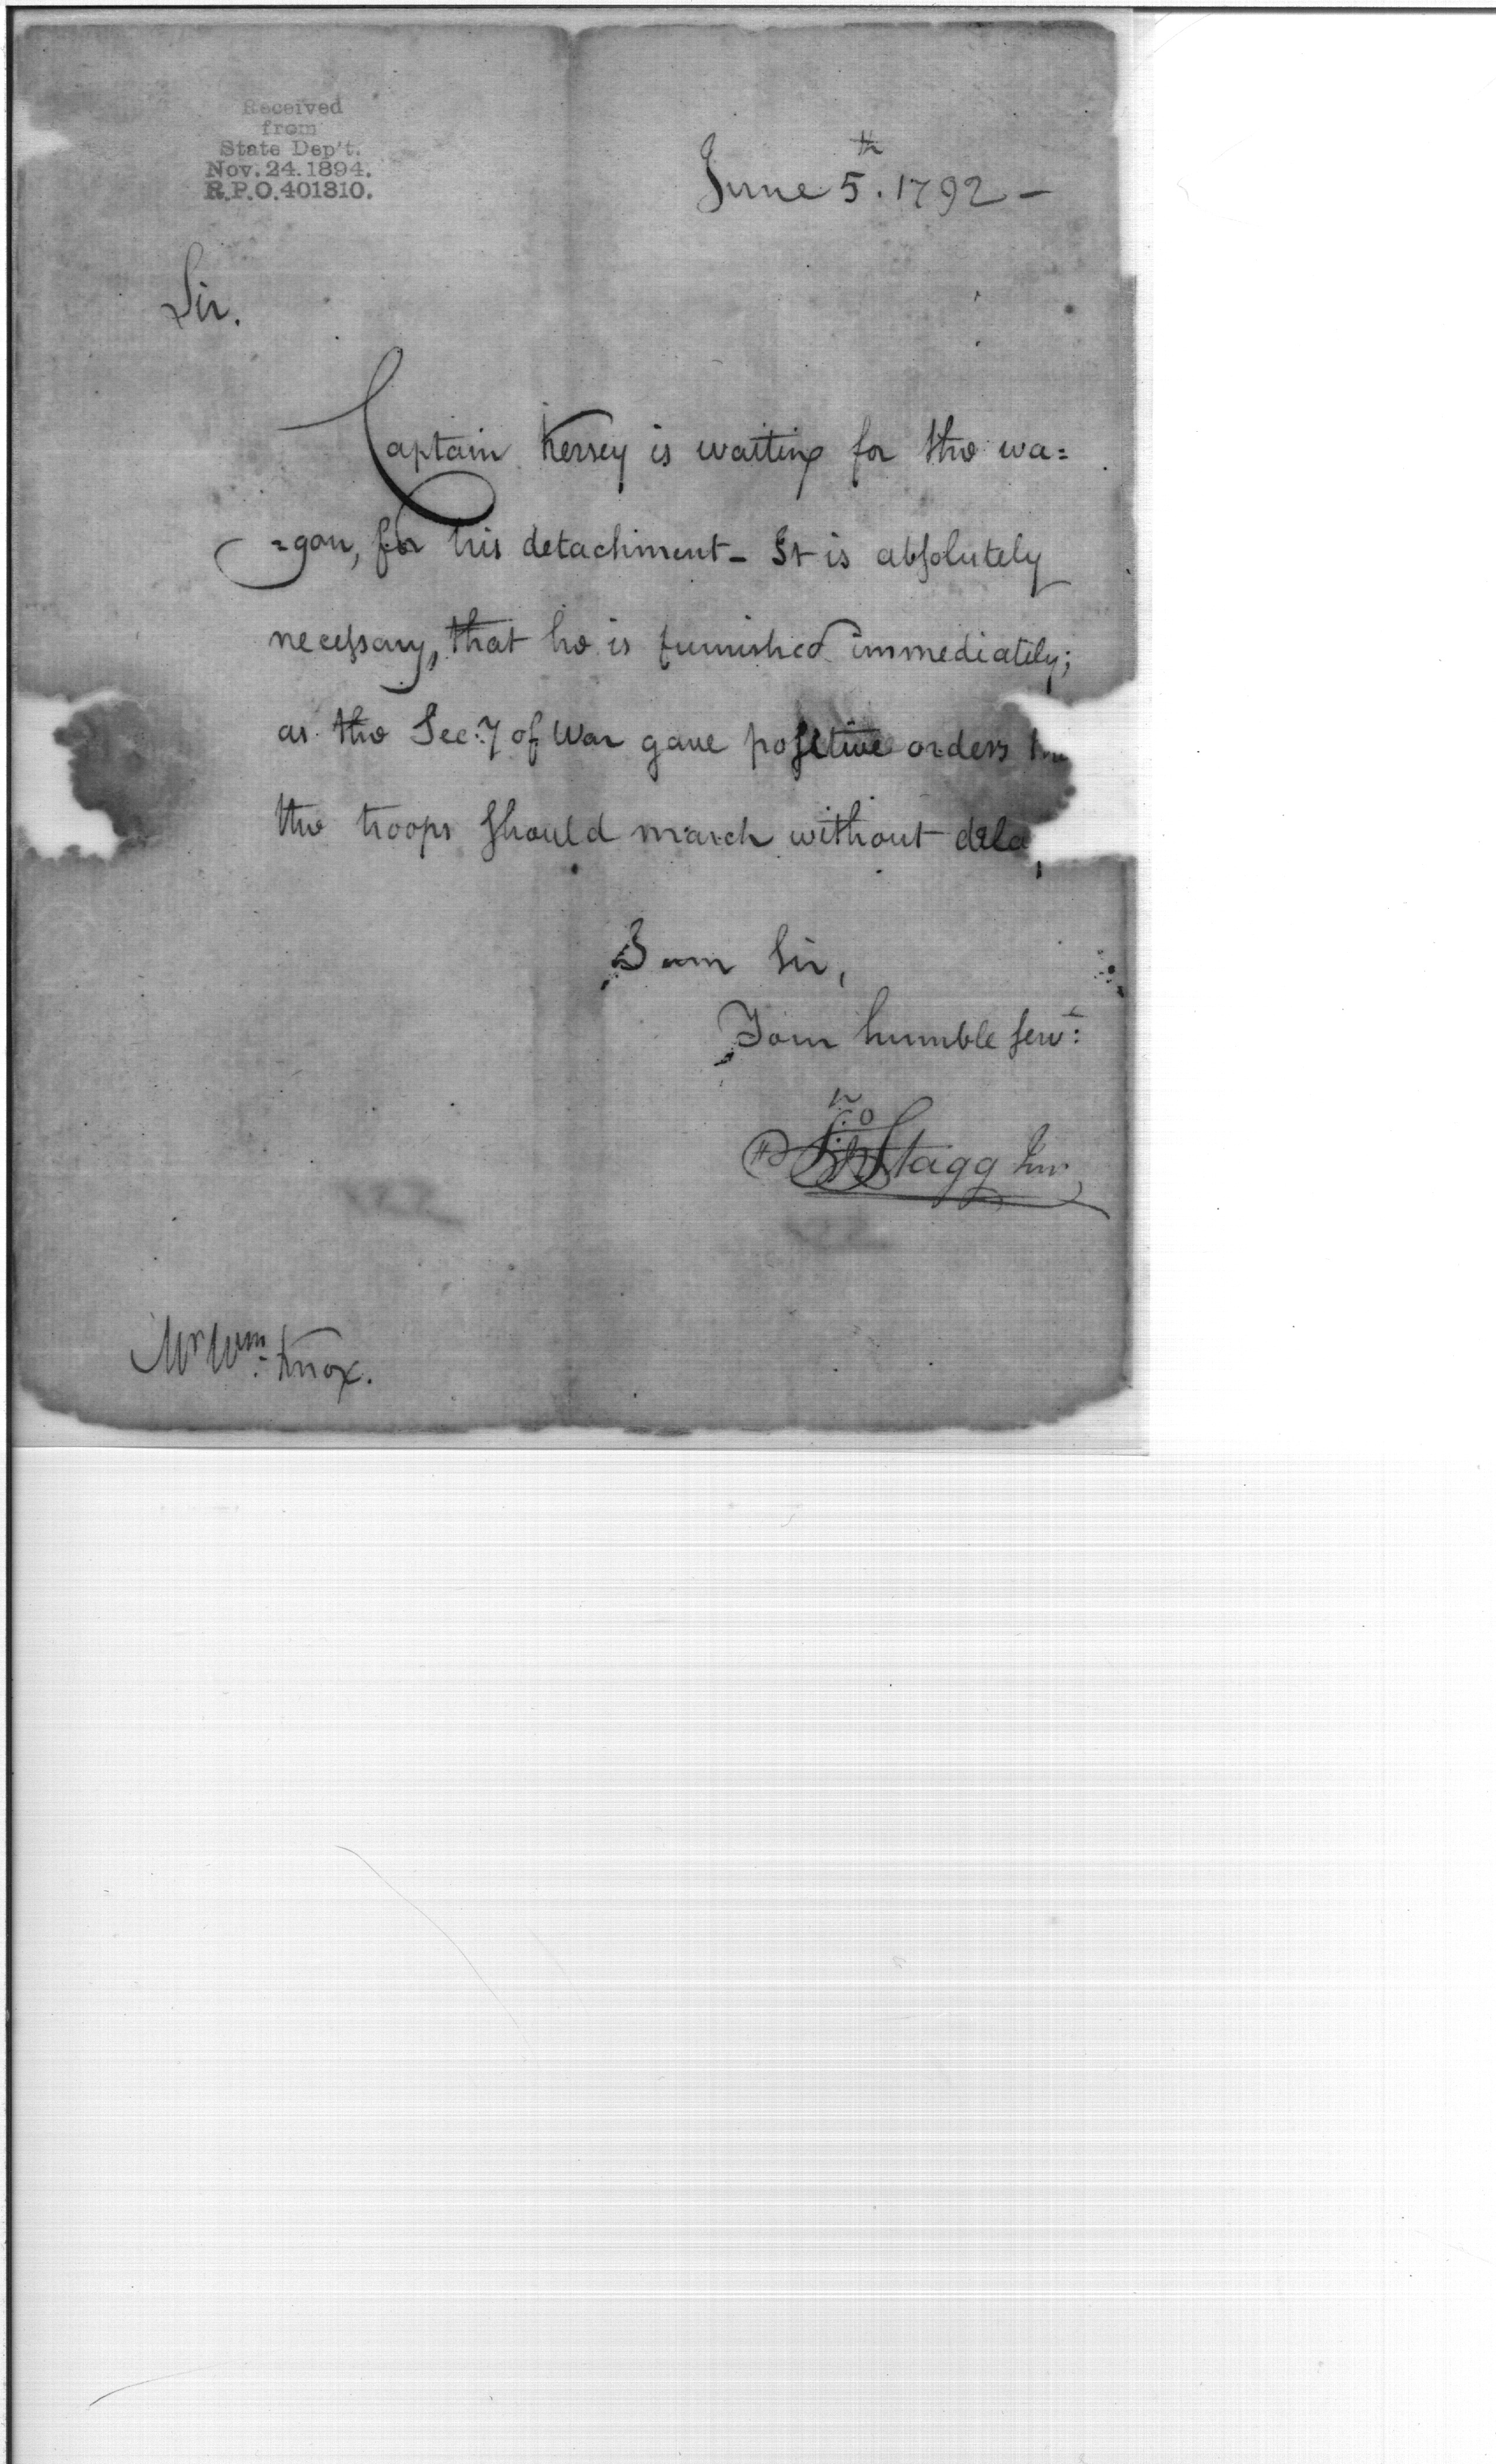 Received
from
State Dep't.
Nov. 24. 1894.
R.P.O. 401810.
June 5th. 1792 —
Sir.
Captain Kersey is waiting for the wa=
=gon, for his detachment — It is absolutely
necessary, that he is furnished immediately;
as the Sec:y of War gave positive orders
the troops should march without dela
I am Sir,
Your humble Servt:
Jno Stagg Jur
Mr Wm: Knox.